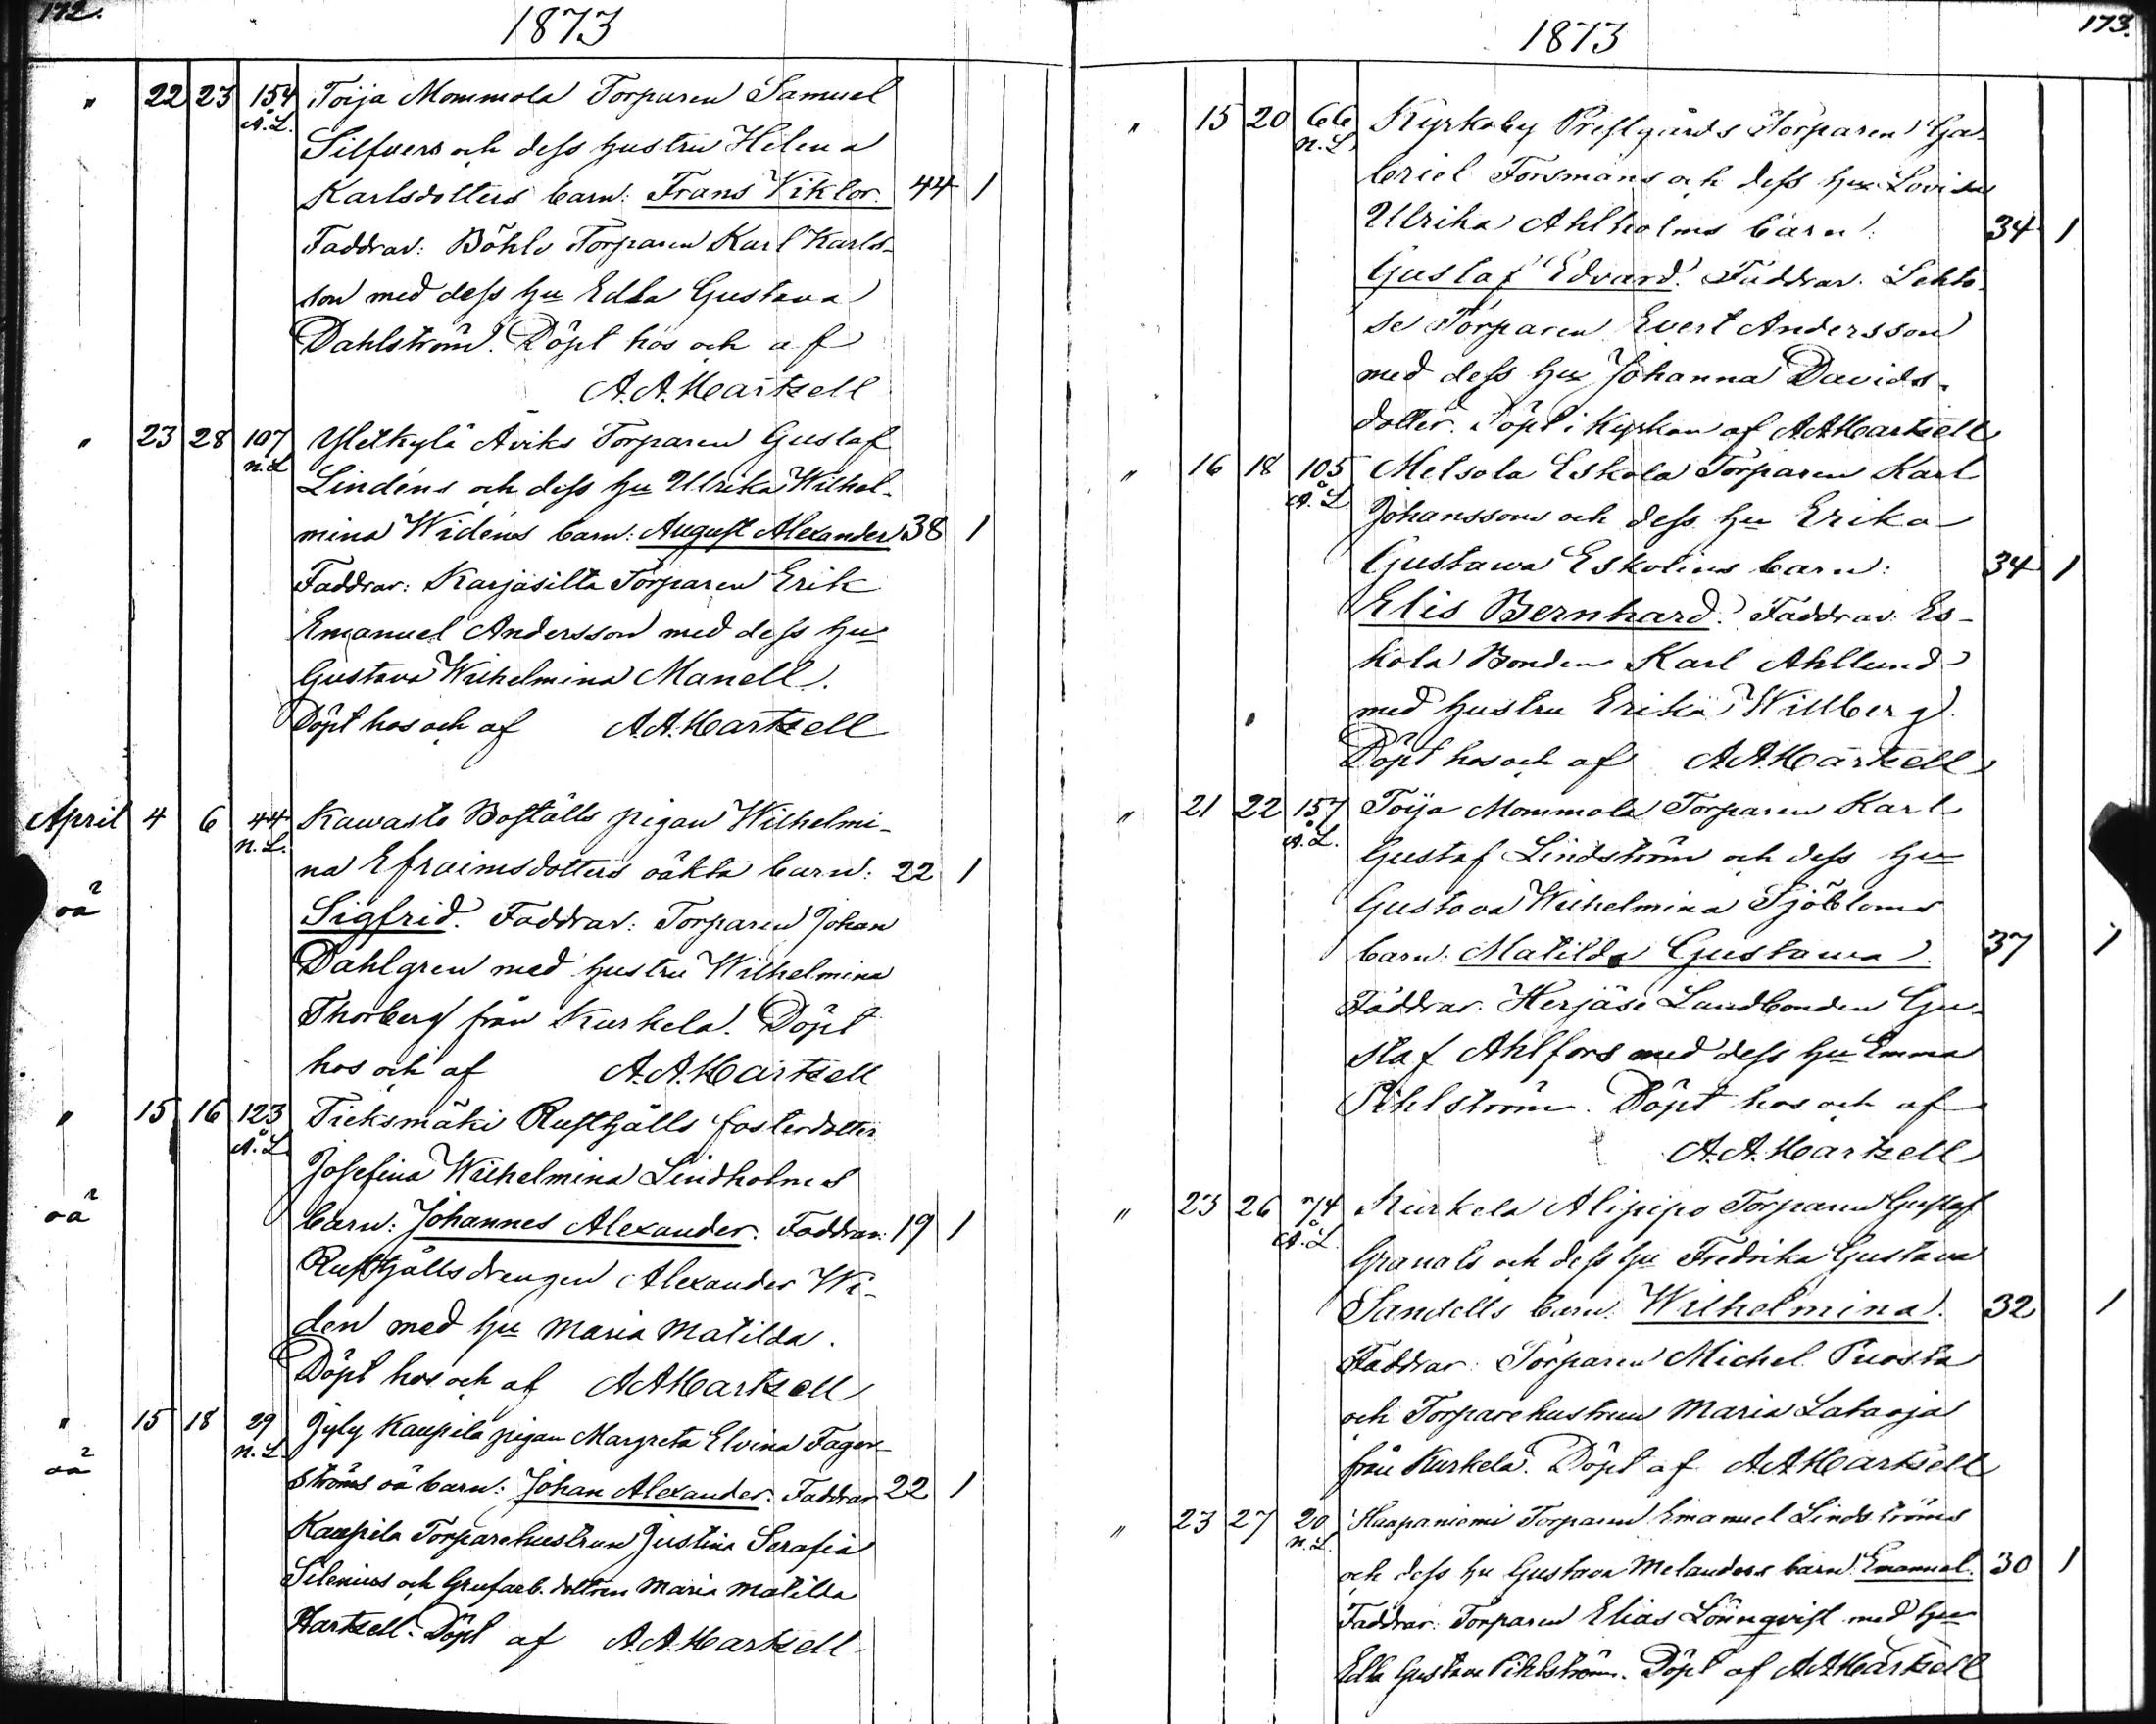 172.
1873
" 22 23 154 Toija Mommola Torparen Samuel
A.L. Silfvers och dess hustru Helena
Karlsdotters barn: Frans Viktor. 44 1
Faddrar: Böhle Torparen Karl Karls-
son med dess hu Edla Gustava
Dahlström. Döpt hos och af
A.A. Hartzell
" 23 28 107 Yletkylä Äviks Torparen Gustaf
n.L Lindéns och dess hu Ulrika Wilhel-
mina Widéns barn: August Alexander 38 1
Faddrar: Karjasilta Torparen Erik
Emanuel Andersson med dess hu
Gustava Wilhelmina Manell.
Döpt hos och af A.A. Hartzell
April 4 6 44 Kawasto Boställs pigan Wilhelmi-
n.L. na Efraimsdotters oäkta barn: 22 1
oä Sigfrid. Faddrar: Torparen Johan
Dahlgren med hustru Wilhelmina
Thorberg från Kurkela. Döpt
hos och af A.A. Hartzell
" 15 16 123 Tieksmäki Rusthålls fosterdotter
A.L Josefina Wilhelmina Lindholms
oä barn: Johannes Alexander. Faddrar: 19 1
Rusthållsdrengen Alexander Wi-
den med hu Maria Matilda.
Döpt hos och af A.A. Hartzell
" 15 18 29 Jyly Kaupila pigan Margreta Elvina Fager-
n.L.
oä ströms oä barn: Johan Alexander. Faddrar 22 1
Kaupila Torparehustrun Justina Serafia
Silenius och Grufarb. dottren Maria Matilda
Hartzell. Döpt af A.A. Hartzell
173.
1873
" 15 20 66 Kyrkoby Prestgårds Torparen Ga-
n.L. briel Forsmans och dess hu Lovisa
Ulrika Ahlholms barn: 34 1
Gustaf Edvard. Faddrar. Lehto-
se Torparen Evert Andersson
med dess hu Johanna Davids-
dotter. Döpt i Kyrkan af A.A. Hartzell
" 16 18 105 Melsola Eskola Torparen Karl
A.L. Johanssons och dess hu Erika
Gustawa Eskolins barn: 34 1
Elis Bernhard. Faddrar: Es-
kola Bonden Karl Ahllund
med hustru Erika Willberg.
Döpt hos och af A.A. Hartzell
" 21 22 157 Toija Mommola Torparen Karl
A.L. Gustaf Lindström och dess hu
Gustava Wilhelmina Sjöbloms
barn: Matilda Gustawa. 37 1
Faddrar. Herjäse Landbonden Gu-
staf Ahlfors med dess hu Emma
Pihlström. Döpt hos och af
A.A. Hartzell
" 23 26 74 Kurkela Alipipo Torparen Gustaf
A.L. Granats och dess hu Fredrika Gustava
Sandells barn: Wilhelmina. 32 1
Faddrar: Torparen Michel Puosta
och Torparehustrun Maria Lataoja
från Kurkela. Döpt af A.A. Hartzell
" 23 27 20 Haapaniemi Torparen Emanuel Lindströms
n.L. och dess hu Gustava Melanders barn: Emanuel. 30 1
Faddrar: Torparen Elias Lönnqvist med hu
Edla Gustava Pihlström. Döpt af A.A. Hartzell